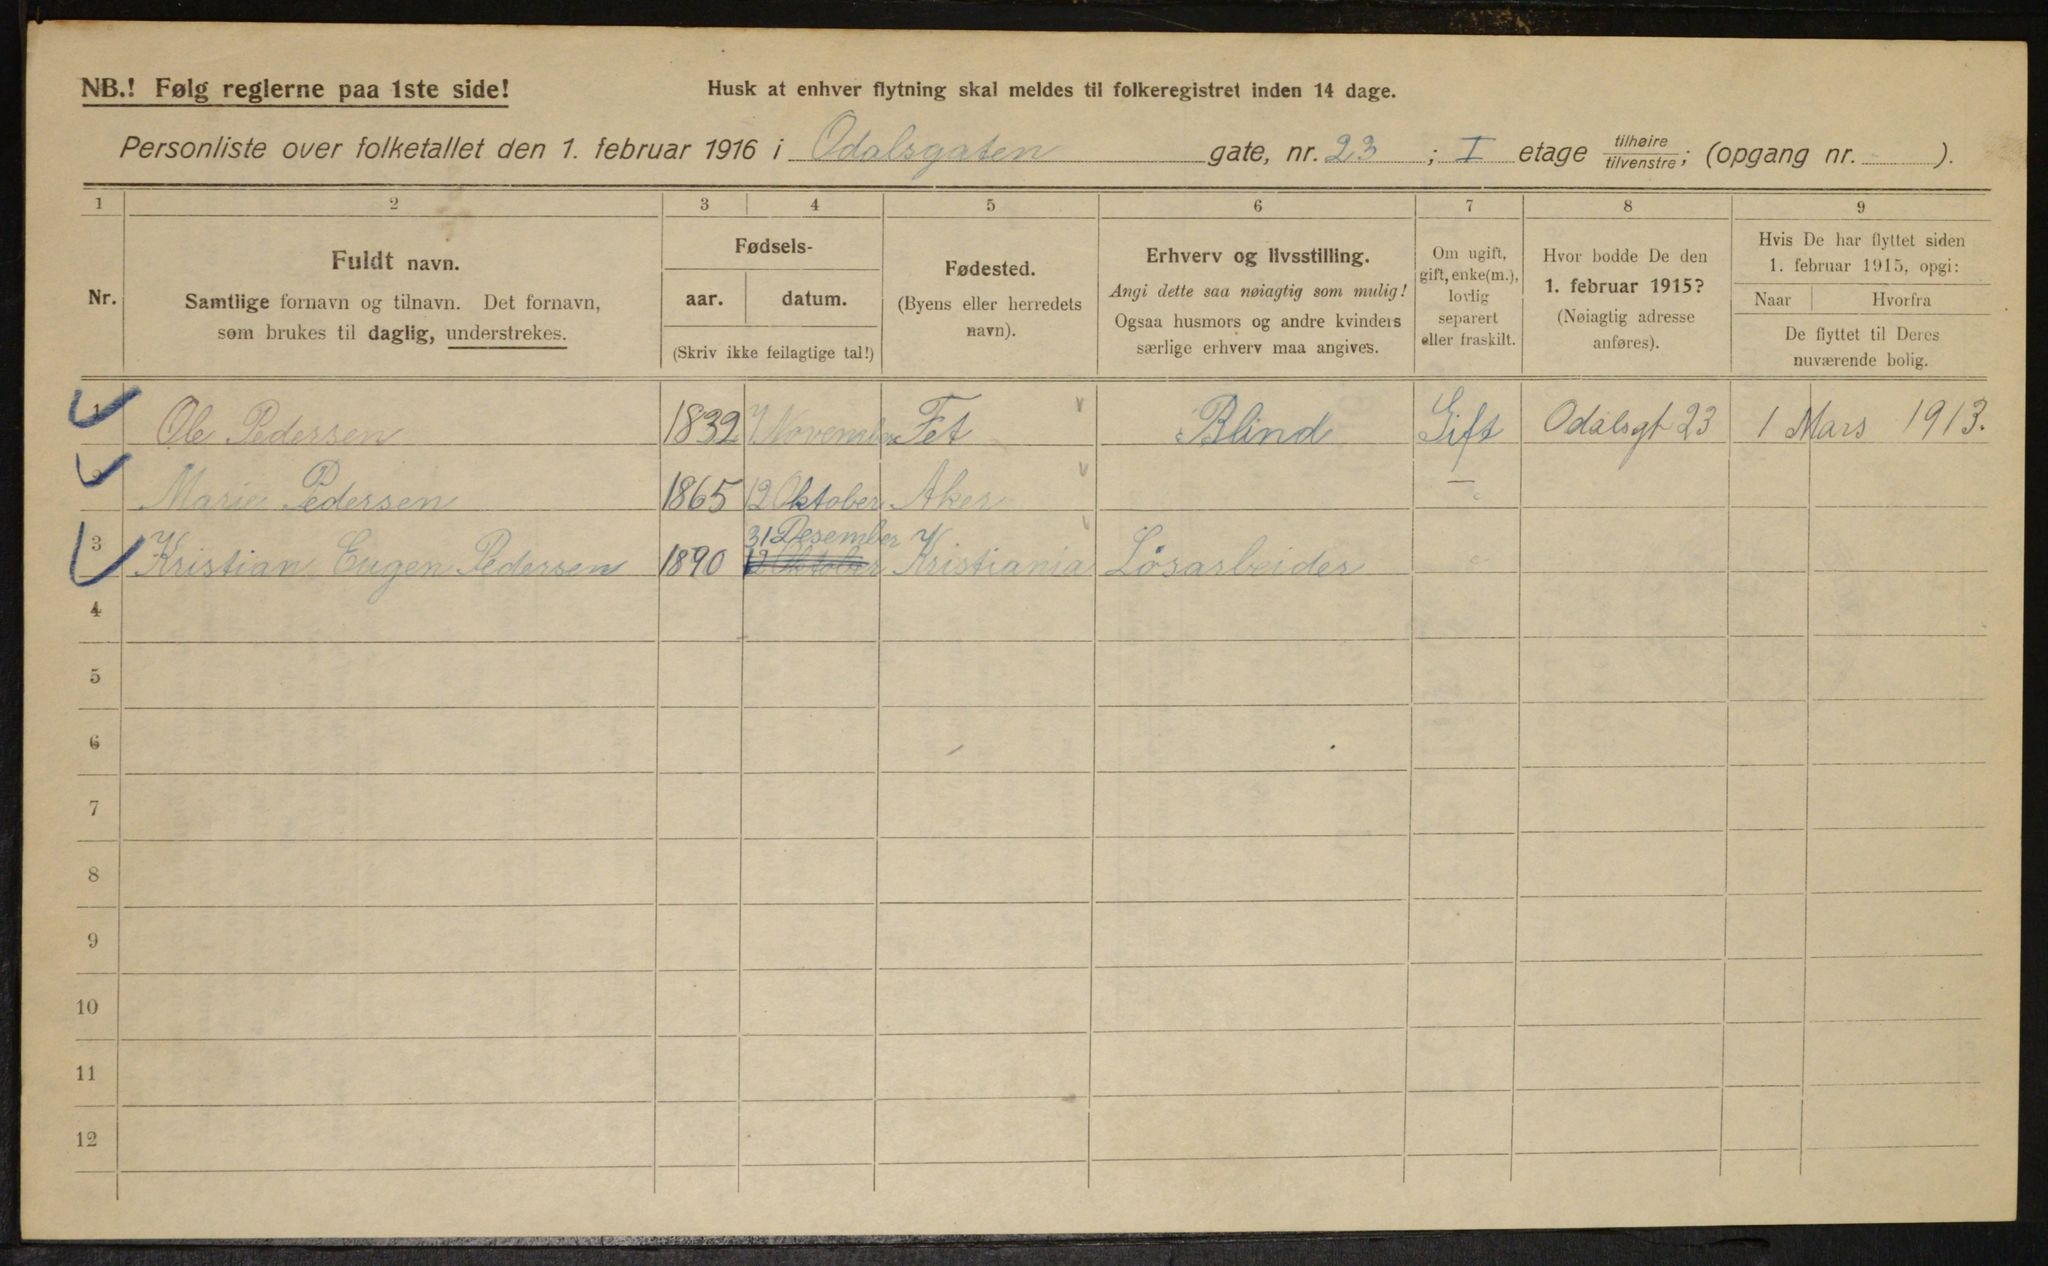 NB.! Følg reglerne paa 1ste side!
Husk at enhver flytning skal meldes til folkeregistret inden 14 dage.
Personliste over folketallet den 1. februar 1916 i Odalsgaten gate, nr. 23 ; I etage tilhøire/tilvenstre; (opgang nr. ).
1 2 3 4 5 6 7 8 9
Nr.
Fuldt navn.
Samtlige fornavn og tilnavn. Det fornavn,
som brukes til daglig, understrekes.
Fødsels-
aar. datum.
(Skriv ikke feilagtige tal!)
Fødested.
(Byens eller herredets
navn).
Erhverv og livsstilling.
Angi dette saa nøiagtig som mulig!
Ogsaa husmors og andre kvinders
særlige erhverv maa angives.
Om ugift,
gift, enke(m.),
lovlig
separert
eller fraskilt.
Hvor bodde De den
1. februar 1915?
(Nøiagtig adresse
anføres).
Hvis De har flyttet siden
1. februar 1915, opgi:
Naar Hvorfra
De flyttet til Deres
nuværende bolig.
1 Ole Pedersen 1832 7 November Fet Blind Gift Odalsgt 23 1 Mars 1913.
2 Marie Pedersen 1865 12 Oktober Aker —
31 Desember
3 Kristian Eugen Pedersen 1890 12 Oktober Kristiania Løsarbeider
4
5
6
7
8
9
10
11
12